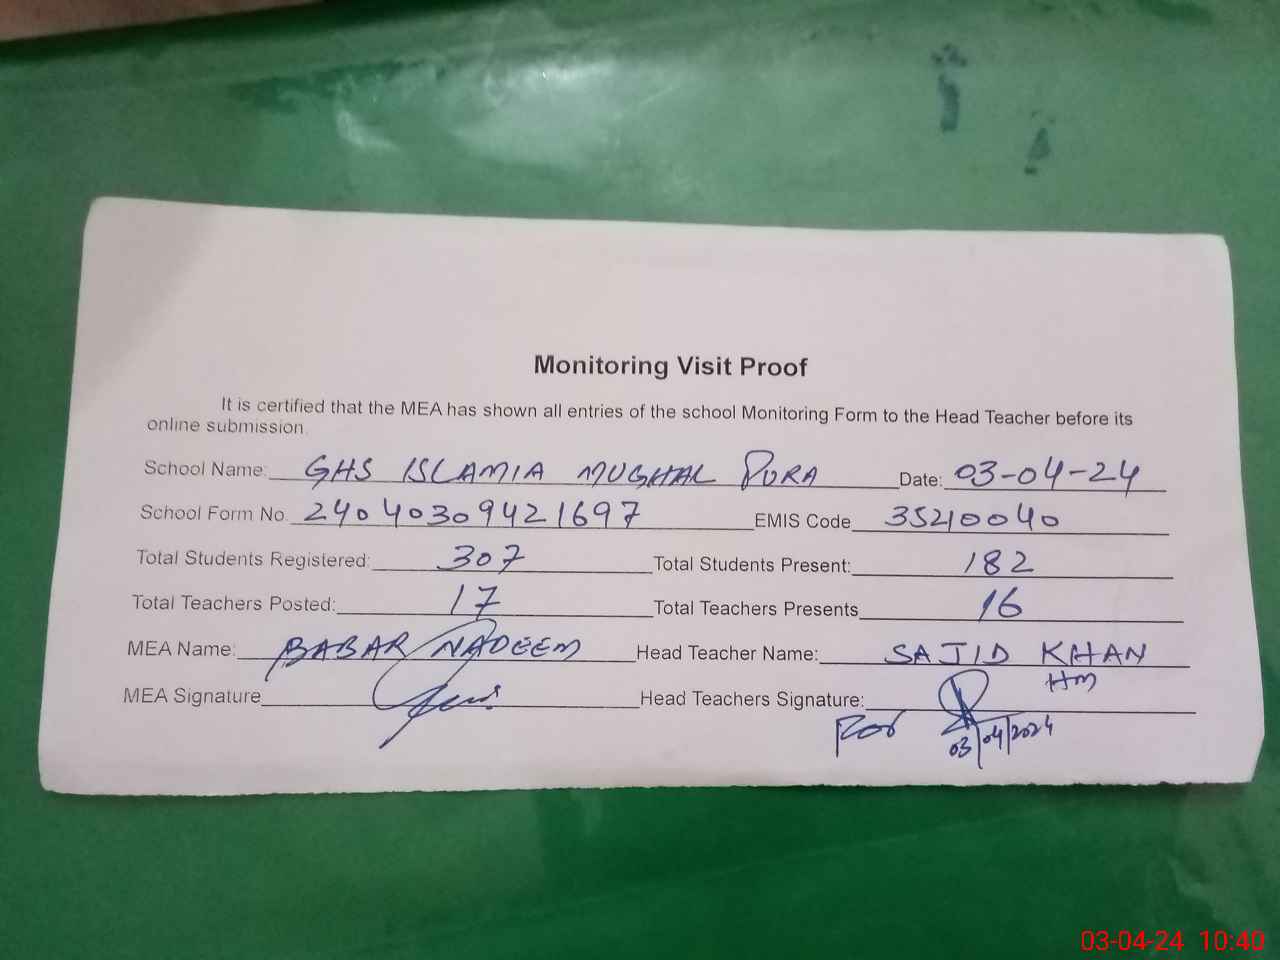 Monitoring Visit Proof
It is certified that the MEA has shown all entries of the school Monitoring Form to the Head Teacher before its
online submission.
School Name: GHS ISLAMIA MUGHAL PURA Date: 03-04-24
School Form No. 2404030942 1697 EMIS Code 35210040
Total Students Registered: 307 Total Students Present: 182
Total Teachers Posted: 17 Total Teachers Presents 16
MEA Name: BABAR NADEEM Head Teacher Name: SAJID KHAN
HM
MEA Signature Head Teachers Signature:
For
03/04/2024
03-04-24 10:40